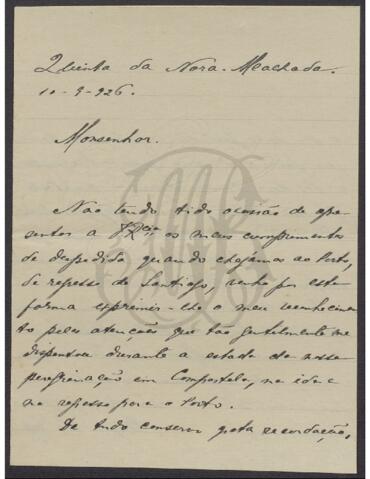 Quinta da Nora. Machada.
10-9-926.
Monsenhor.
Não tendo tido occasião de apre-
sentar a V. Rcia os meus cumprimentos
de despedida quando chegámos ao Porto,
de regresso de Santiago, venho por esta
forma exprimir-lhe o meu reconhecimen-
to pelas atenções que tão gentilmente me
dispensou durante a estada da nossa
peregrinação em Compostela, na ida e
no regresso para o Porto.
De tudo conservo grata recordação,